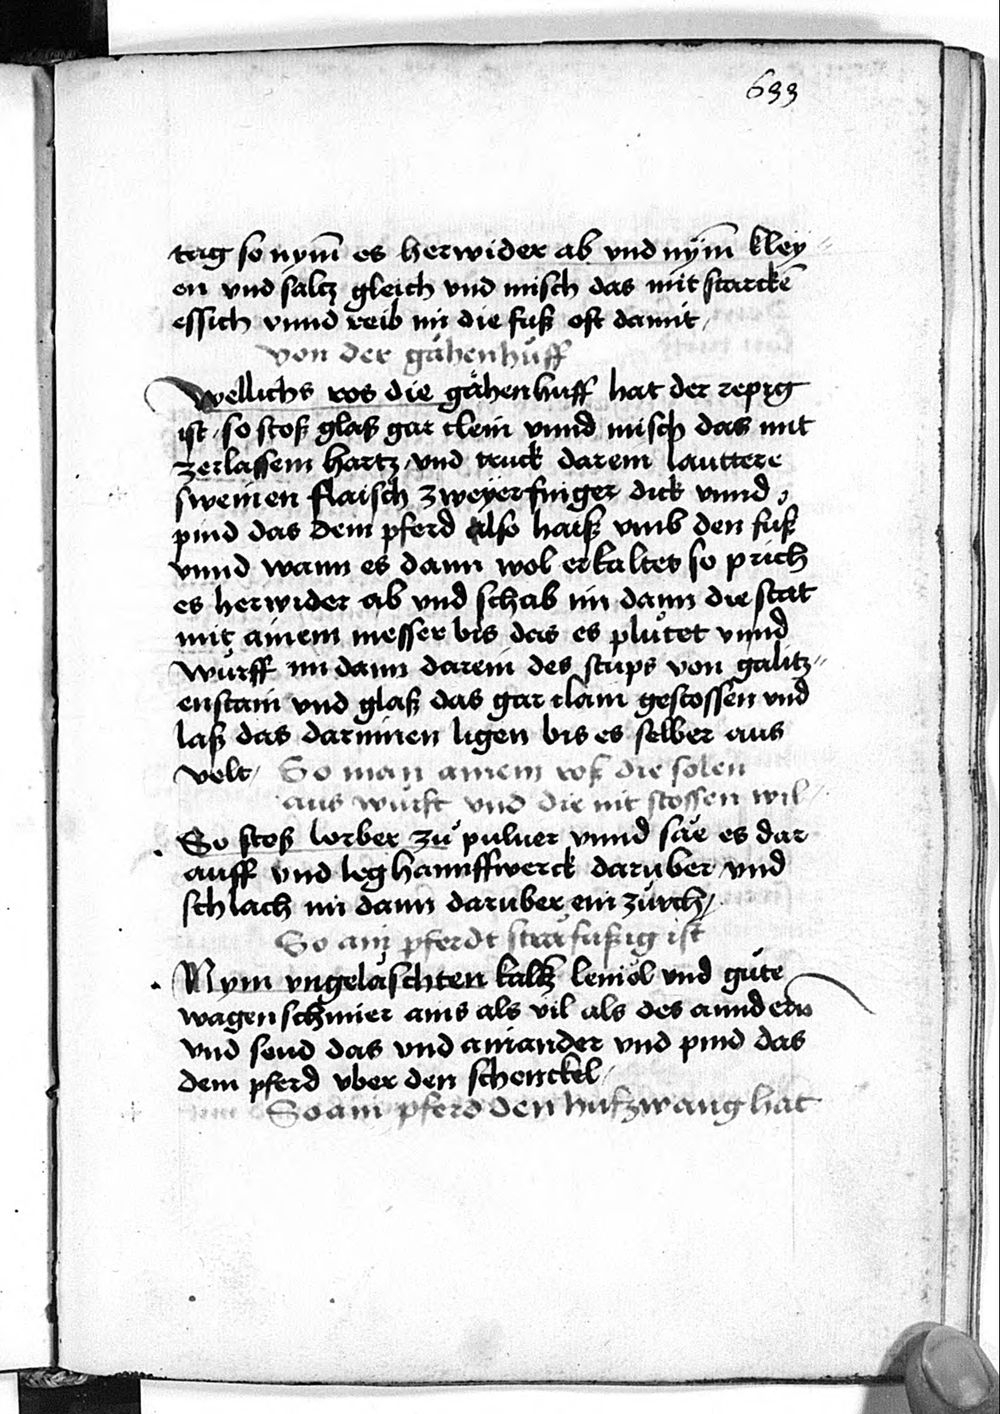 633
tag so nym̄ es herwider ab vnd nym̄ kley
en vnd saltz gleich vnd misch das mit starckē
essich vnnd reib im die fuß oft damit /
von der gåhenhůff
Wellichs ros die gåhenhuff hat der repig
ist / so stoß glaß gar clein vnnd misch das mit
zerlassem hartz / vnd truck darein lauttere
sweinen flaisch zweyer finger dick vnnd
pind das dem pferd also haiß vmb den fuß
vnnd wann es dann wol erkaltet so prich
es herwider ab vnd schab im dann die stat
mit ainem messer bis das es plůtet vnnd
wůrff im dann darein des stups von galitz〃
enstain vnd glaß das gar clain gestossen vnd
laß das darinnen ligen bis es selber aus
velt / So man ainem roß die solen
aus wurft vnd die nit stossen wil /
So stoß lorber zů puluer vnnd såe es dar
auff vnd leg hannffwerck daruber / vnd
schlach im dann daruber ein zůrch /
So ain pferdt stråfußig ist
Nym vngelåschten kalk leinöl vnd gůte
wagenschmier ains als vil als des anndern
vnd seud das vnd ainander vnd pind das
dem pferd vber den schenckel /
So ain pferd den hufzwang hat